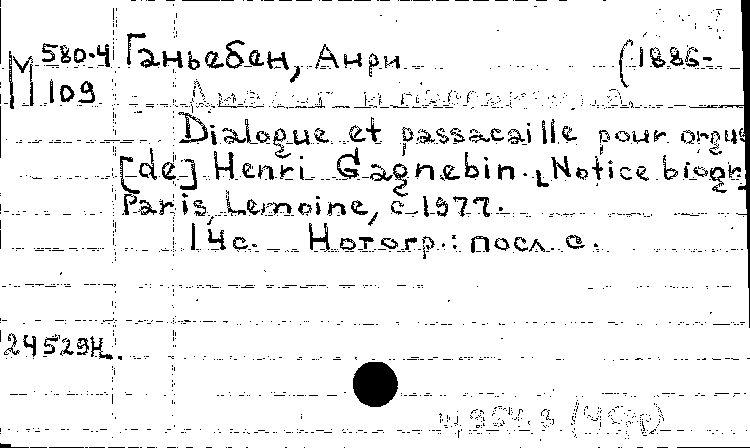 М 580-4 Ганьебен, Анри (1886-
109 Диалог и пассакалия.
Dialogue et passacaille pour orgue
[de] Henri Gagnebin. [Notice biogr]
Paris, Lemoine, c 1977.
14 с. Нотогр.: посл. с.
24529н.
щ954.3 (4Фр)